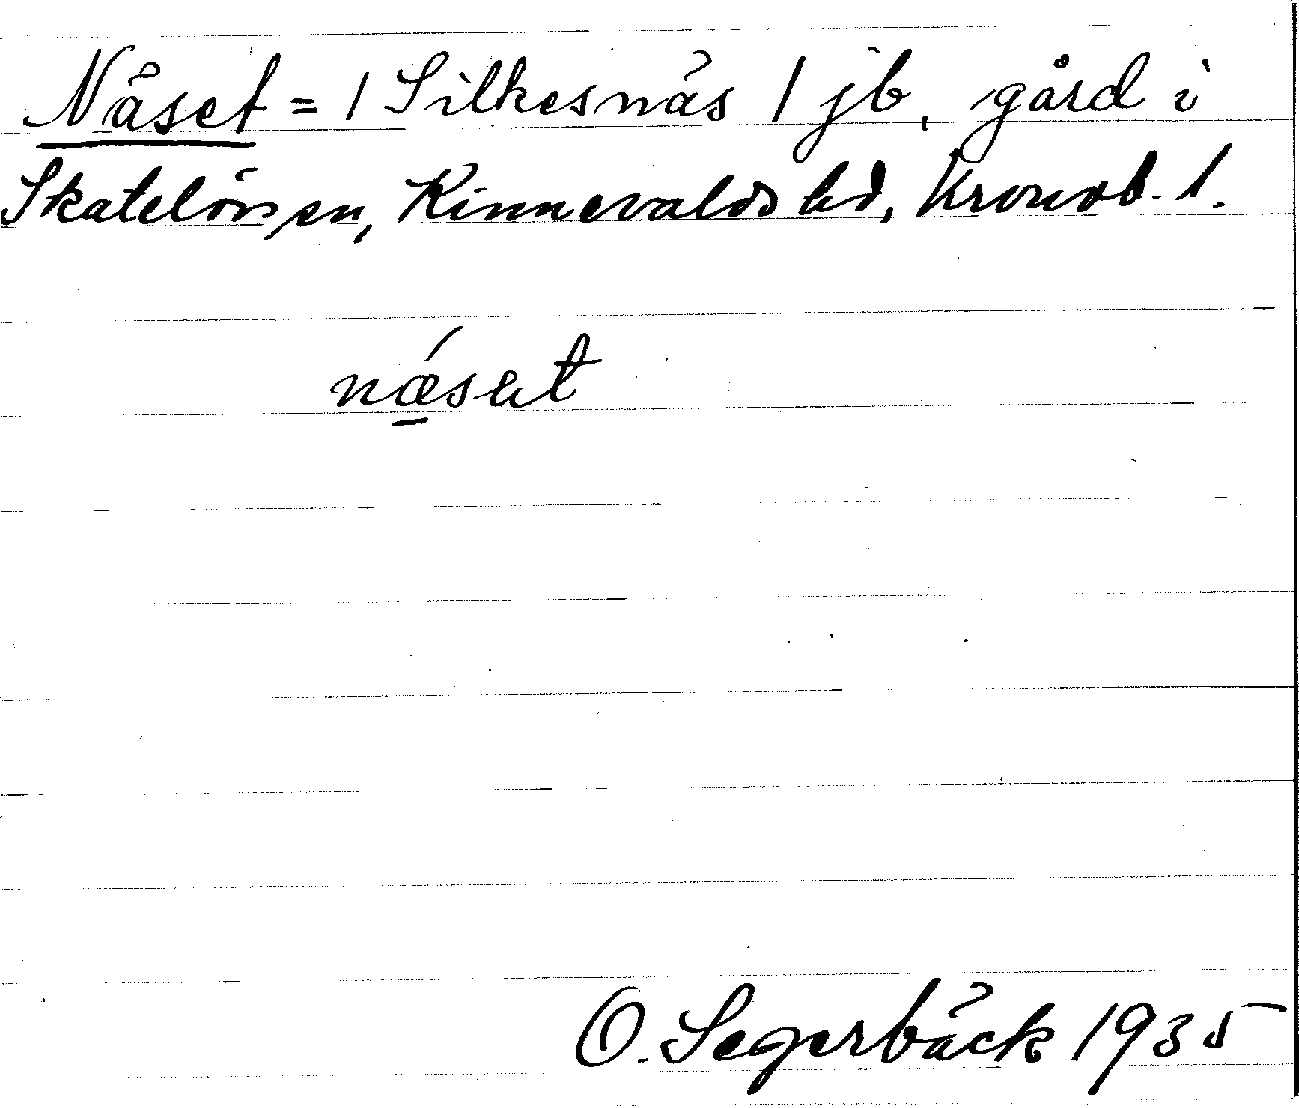 Näset = / Silkesnäs / jb, gård i
Skatelövs sn, Kinnevalds hd, Kronob. l.
næsət
O. Segerbäck 1935